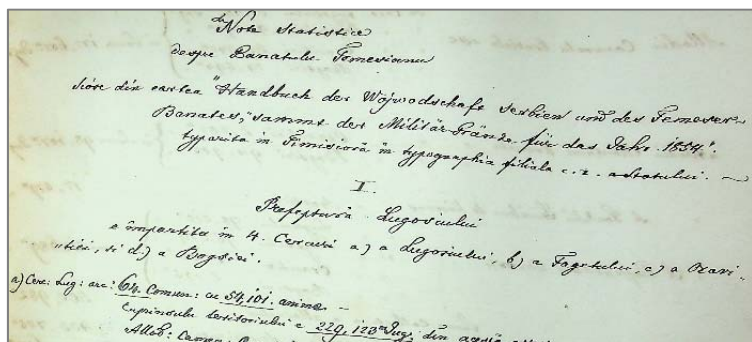 Note Statistice
despre Banatulu Temesianu
scose din cartea "Handbuch der Wojwodschaft Serbien und des Temeser-
Banates," sammt der Militär-Gränze für das Jahr 1854".
typarita in Timisióra in typographia filiala c. r. a Statului. —
I.
Prefeptura Lugosiului
e impartita in 4. Cercuri a) a Lugosiului, b) a Fagetului, c) a Oravi-
tiei, si d.) a Bogsiei.
a) Cerc: Lug: are: 64. Comun: cu 54,101. anime. —
Cuprinsulu teritoriului e 229,123 Jug: din